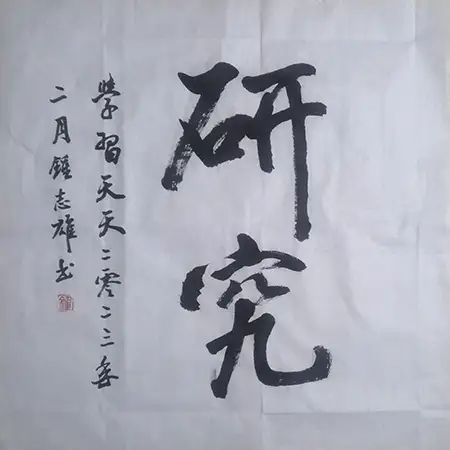 研究
學習天天二零二三年
二月鍾志雄书